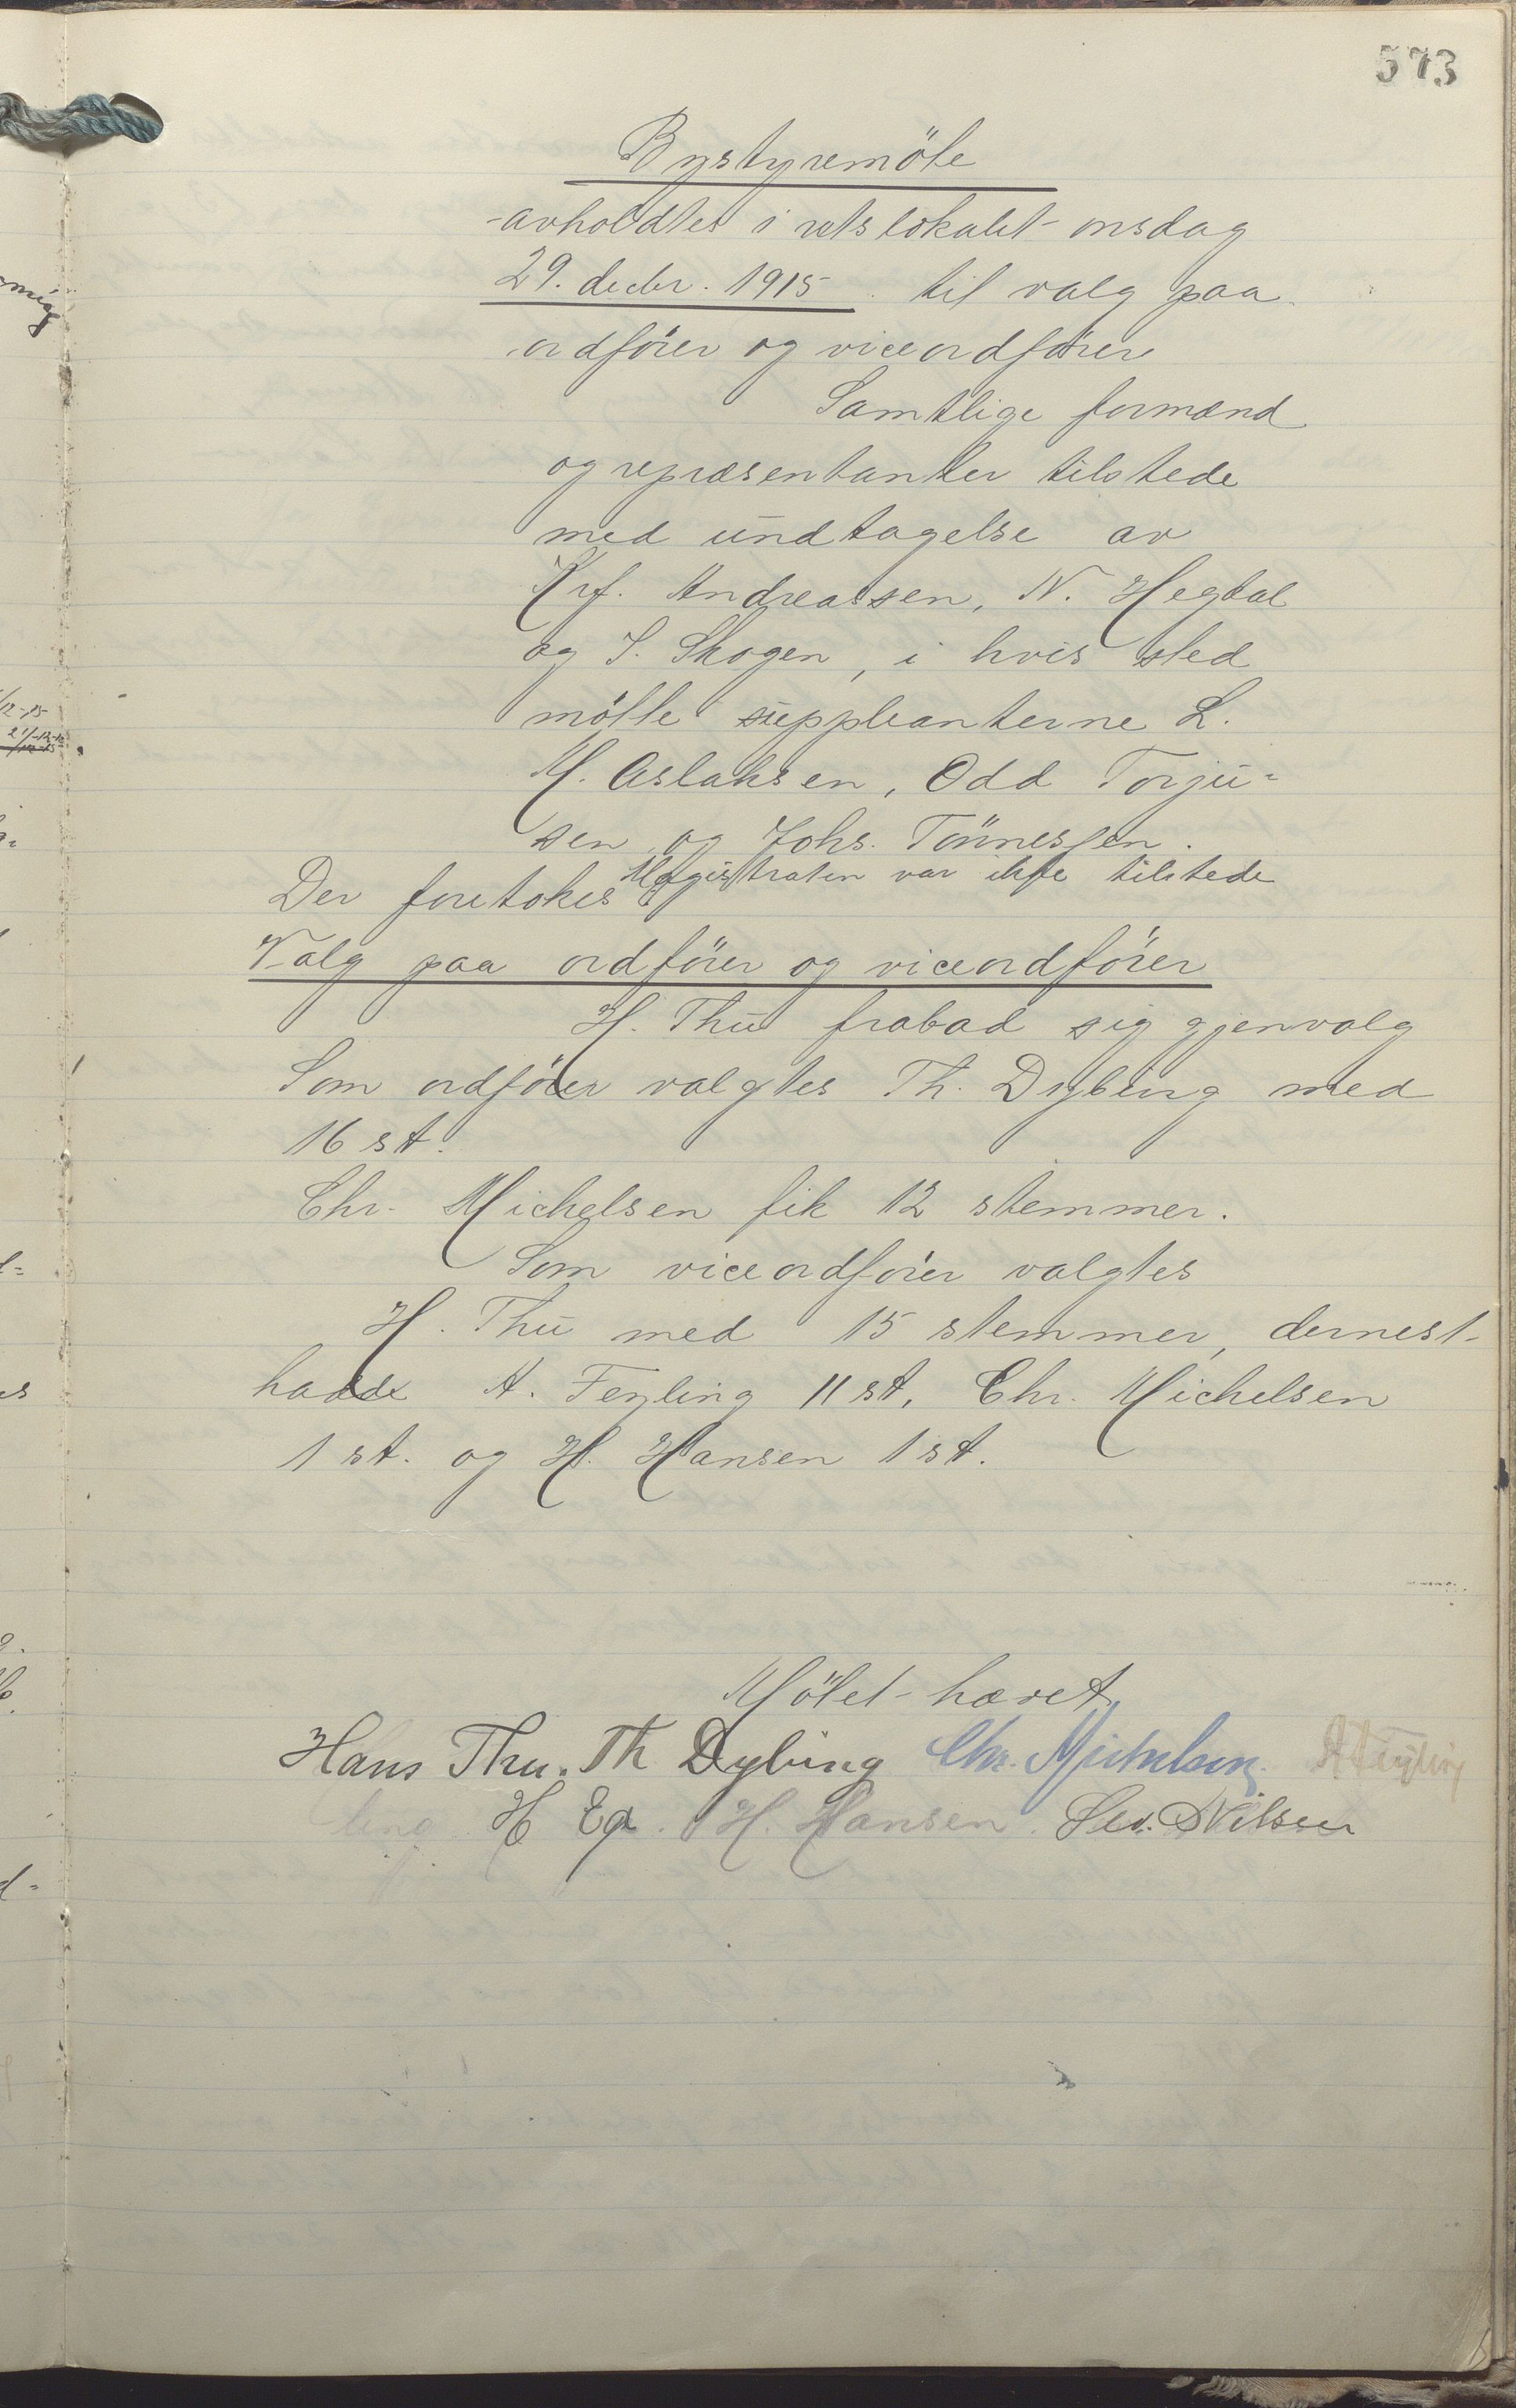 573
Bystyremöte
avholdtes i retslokalet onsdag
29. decbr. 1915 til valg paa
ordförer og viceordförer
Samtlige formænd
og repræsentanter tilstede
med undtagelse av
Krf. Andreassen, N. Hegdal
og S. Skogen, i hvis sted
mötte suppleanterne L.
M. Aslaksen, Odd Torju-
sen og Johs. Tönnessen.
Magistraten var ikke tilstede
Der foretokes
Valg paa ordförer og viceordförer
H. Thu frabad sig gjenvalg
Som ordförer valgtes Th. Dybing med
16 st.
Chr. Michelsen fik 12 stemmer.
Som viceordförer valgtes
H. Thu med 15 stemmer, dernest
hadde A. Feyling 11 st, Chr. Michelsen
1 st. og H. Hansen 1 st.
Mötet hævet
Hans Thu. Th Dybing Chr. Michelsen. A Feyling
H Eg. H. Hansen. Sev. Nilsen